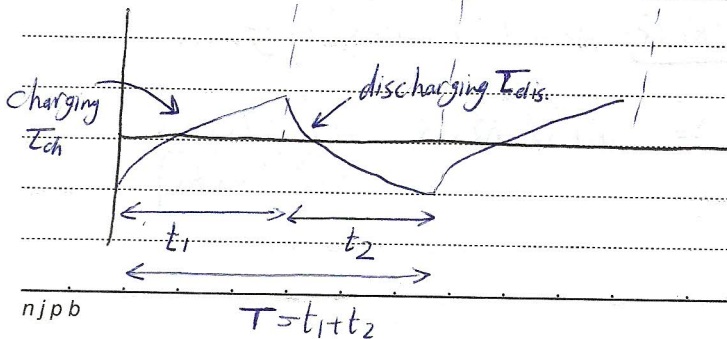 charging
τch
discharging τdis.
t1
t2
njpb
T=t1+t2